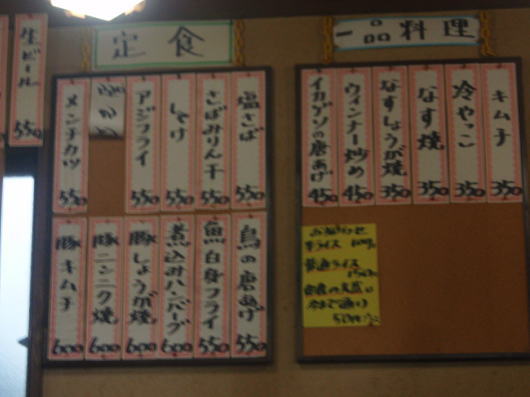 定食
塩さば 550
さばみりん干 550
しゃけ 550
アジフライ 550
メンチカツ 550
鳥の唐あげ 550
魚白身フライ 550
煮込みハンバーグ 600
豚しょうが焼 600
豚ニンニク焼 600
豚キムチ 600
生ビール 550
一品料理
キムチ 350
冷やっこ 350
なす焼 350
なすしょうが焼 350
ウィンナー炒め 450
イカゲソの唐あげ 450
お知らせ
半ライス 100
普通ライス 150